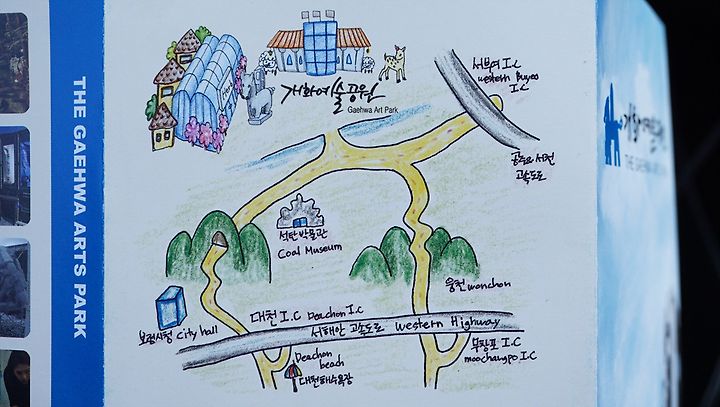 THE GAEHWA ARTS PARK
개화예술공원
Gaehwa Art Park
서부여 I.C
western Buyeo
I.C
공주요 서천
고속도로
석탄박물관
Coal Museum
웅천 wonchon
대천 I.C Deachon I.C
보령시청 City hall
서해안 고속도로 Western Highway
무창포 I.C
moochangpo I.C
Deachon
beach
대천해수욕장